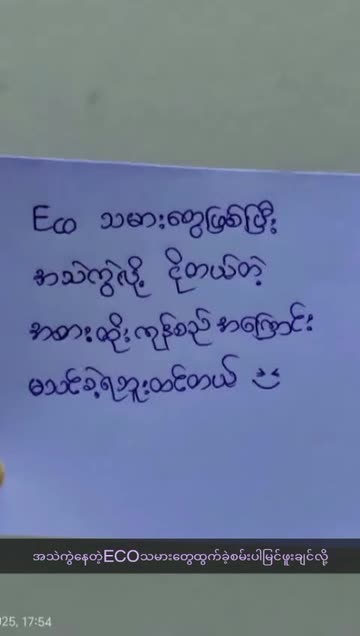 Eco သမားတွေဖြစ်ပြီး
အသဲကွဲလို့ ငိုတယ်တဲ့
အစားထိုးကုန်စည်အကြောင်း
မသင်ခဲ့ရဘူးထင်တယ်
အသဲကွဲနေတဲ့ECOသမားတွေထွက်ခဲ့စမ်းပါမြင်ဖူးချင်လို့
025, 17:54